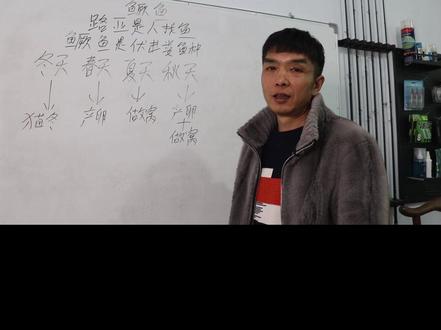 鳜鱼
路亚是人找鱼
鳜鱼是伏击类鱼种
冬天 春天 夏天 秋天
↓ ↓ ↓ ↓
猫冬 产卵 做窝 产卵
+
做窝